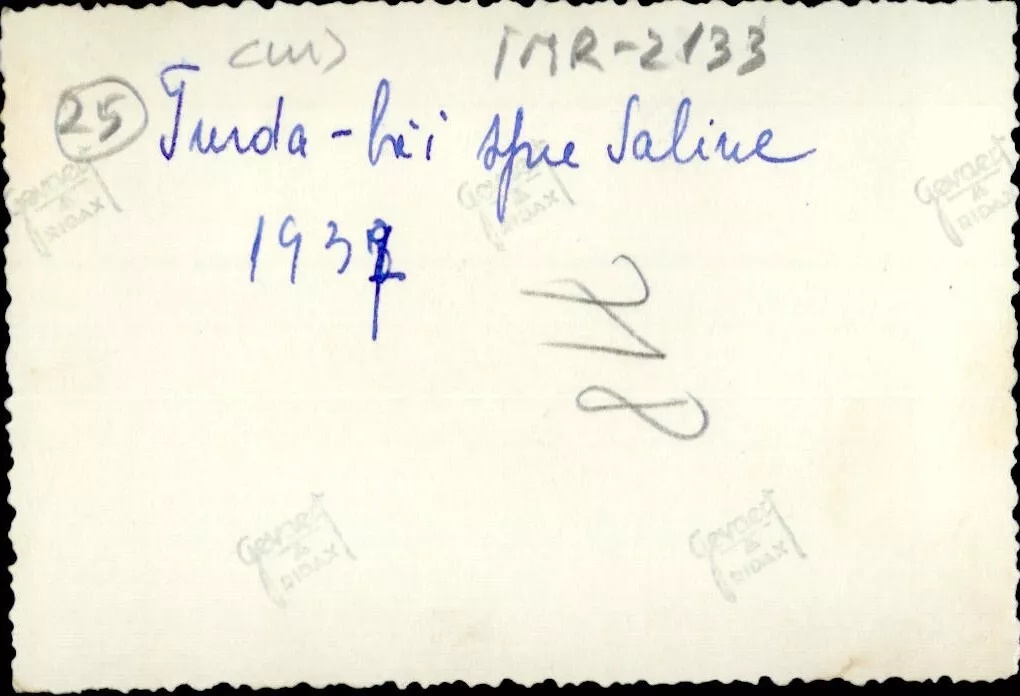 IMR-2133
25 Turda - băi spre Saline
1937
Gevaert
RIDAX
Gevaert
RIDAX
Gevaert
RIDAX
Gevaert
RIDAX
Gevaert
RIDAX